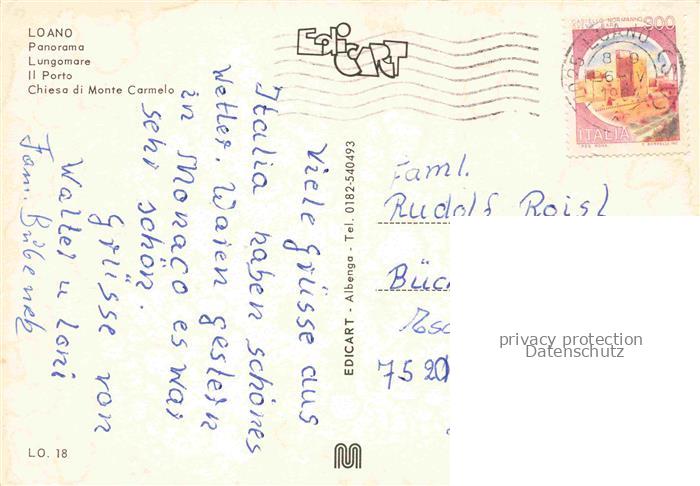 LOANO
Panorama
Lungomare
Il Porto
Chiesa di Monte Carmelo
EdiCART
CASTELLO NORMANNO
900
ITALIA
LOANO
Viele Grüsse aus
Italia haben schönes
Wetter. Waren gestern
in Monaco es war
sehr schön.
Grüsse von
Walter u Loni
Fam.
EDICART - Albenga - Tel. 0182-540493
Faml.
Rudolf Roisl
Büc
75 20
privacy protection
Datenschutz
LO. 18